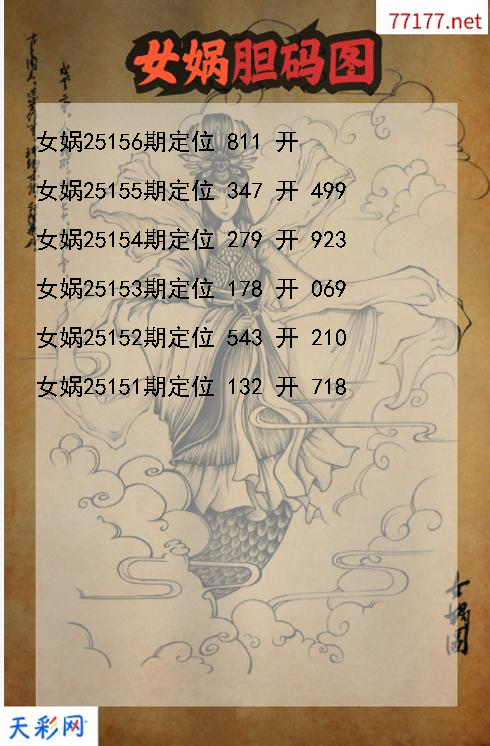 77177.net
女娲胆码图
女娲25156期定位 811 开
女娲25155期定位 347 开 499
女娲25154期定位 279 开 923
女娲25153期定位 178 开 069
女娲25152期定位 543 开 210
女娲25151期定位 132 开 718
女娲图
天彩网